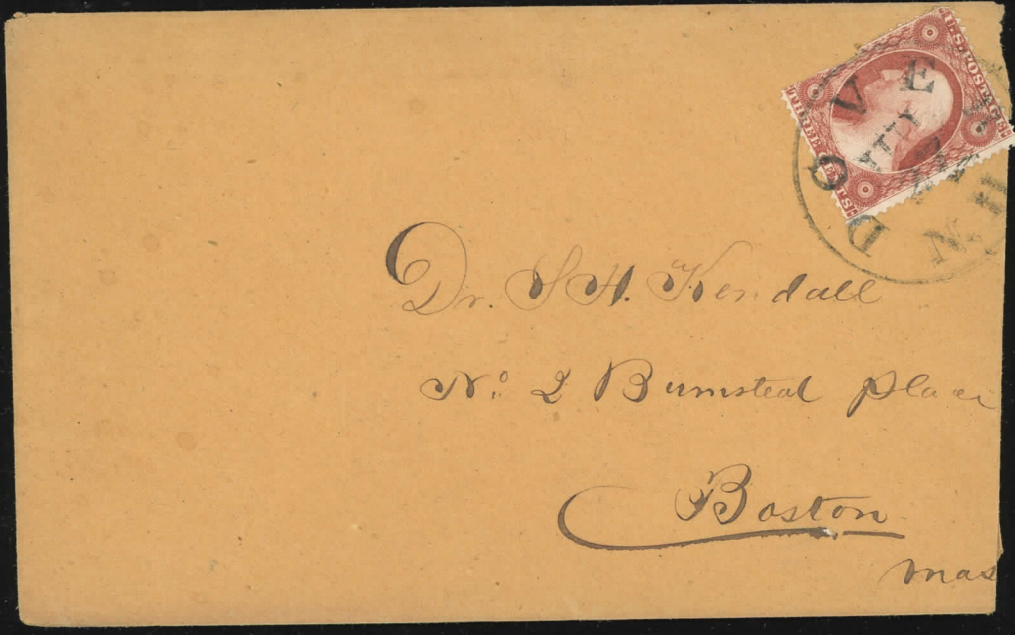 U.S. POSTAGE
THREE CENTS
DOVER
N.H
Dr. S. H. Kendall
No. 2 Bumstead Place
Boston
Mas